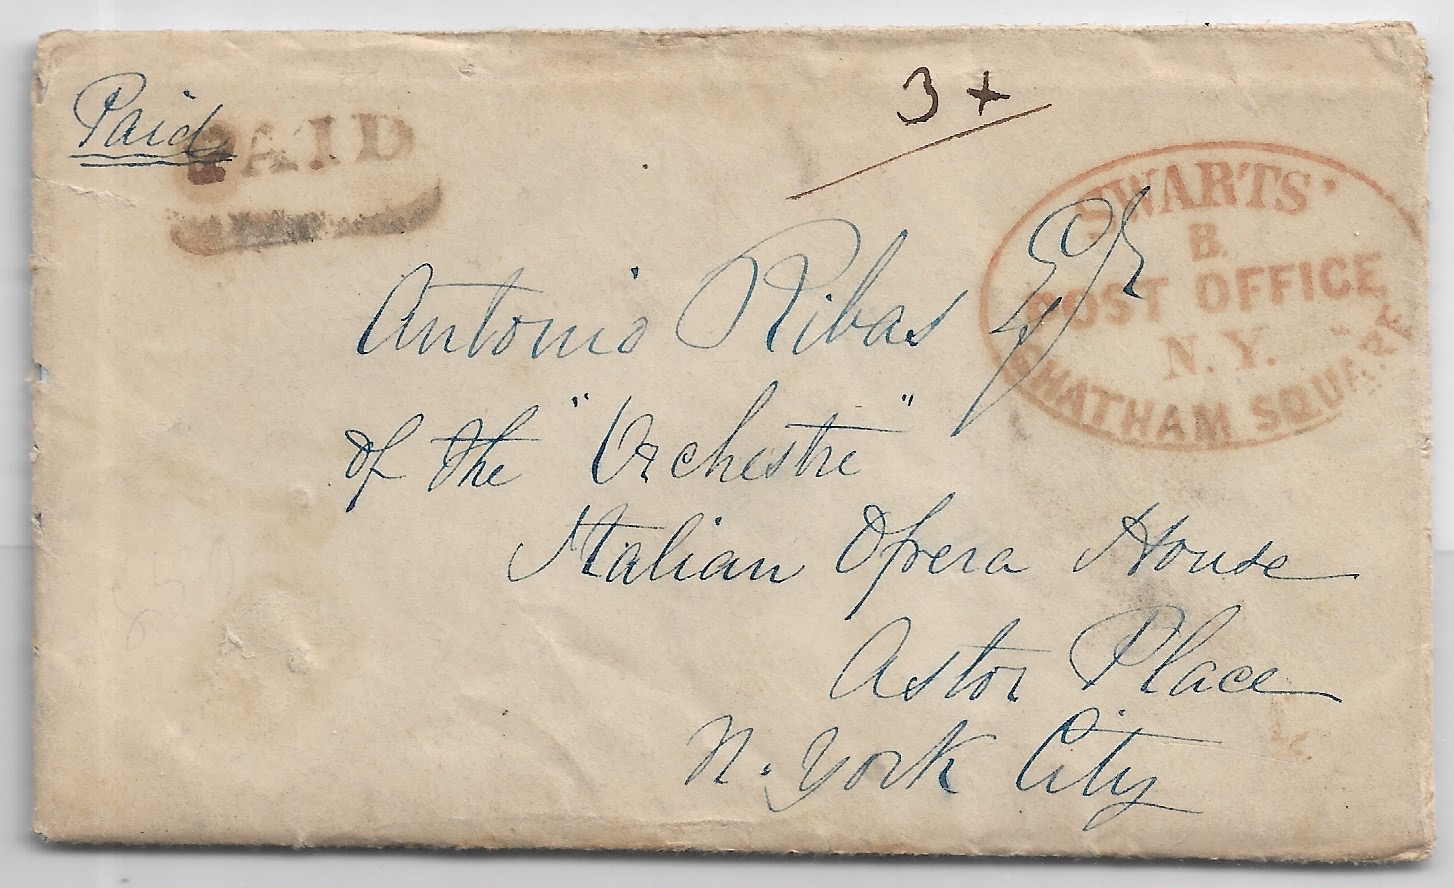 Paid
PAID
3 x
SWARTS'
B.
POST OFFICE
N.Y.
CHATHAM SQUARE
Antonio Ribas Esqr
of the "Orchestre"
Italian Opera House
Astor Place
N. York City